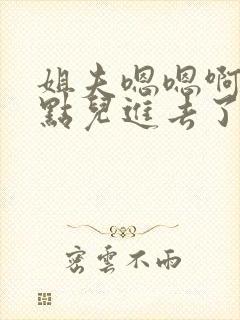 姐夫嗯嗯啊
點兒進去了
密雲不雨